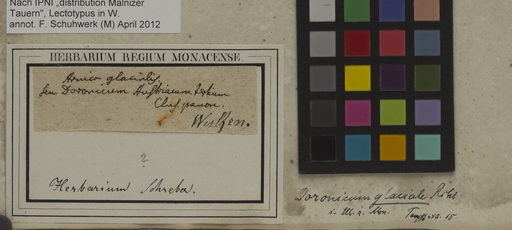 Nach IPNI „distribution Malnizer
Tauern", Lectotypus in W.
annot. F. Schuhwerk (M) April 2012
HERBARIUM REGIUM MONACENSE.
Arnica glacialis,
seu Doronicum Austriacum tertium
Clus. panon.
Wulfen.
?
Herbarium Schreber.
Doronicum glaciale